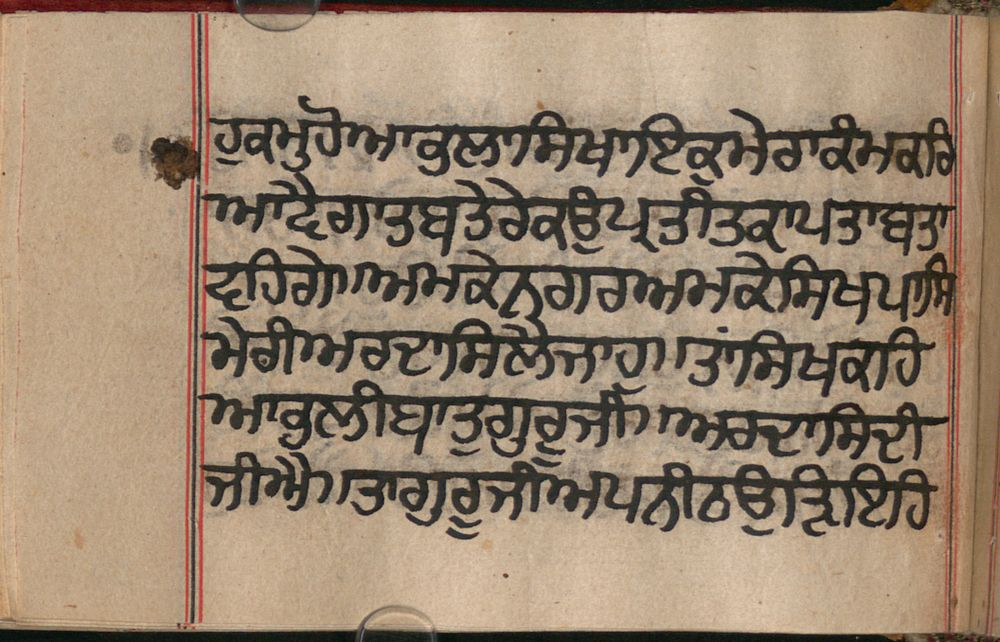 ਹੁਕਮੁਹੋਆਭੁਲਾਸਿਖਾਇਕੁਮੇਰਾਕੰਮਕਰਿ
ਆਵੈਗਾਤਬਤੇਰੇਕਉਪ੍ਰਤੀਤਕਾਪਤਾਬਤਾ
ਵਹਿਗੇ॥ਅਮਕੇਨਗਰਅਮਕੇਸਿਖਪਾਸਿ
ਮੇਰੀਅਰਦਾਸਿਲੈਜਾਹੁ॥ਤਾਂਸਿਖਕਹਿ
ਆਭੁਲੀਬਾਤੁਗੁਰੂਜੀ॥ਅਰਦਾਸਿਦੀ
ਜੀਐ॥ਤਾਗੁਰੂਜੀਅਪਨੀਠਉੜਿਇਹਿ